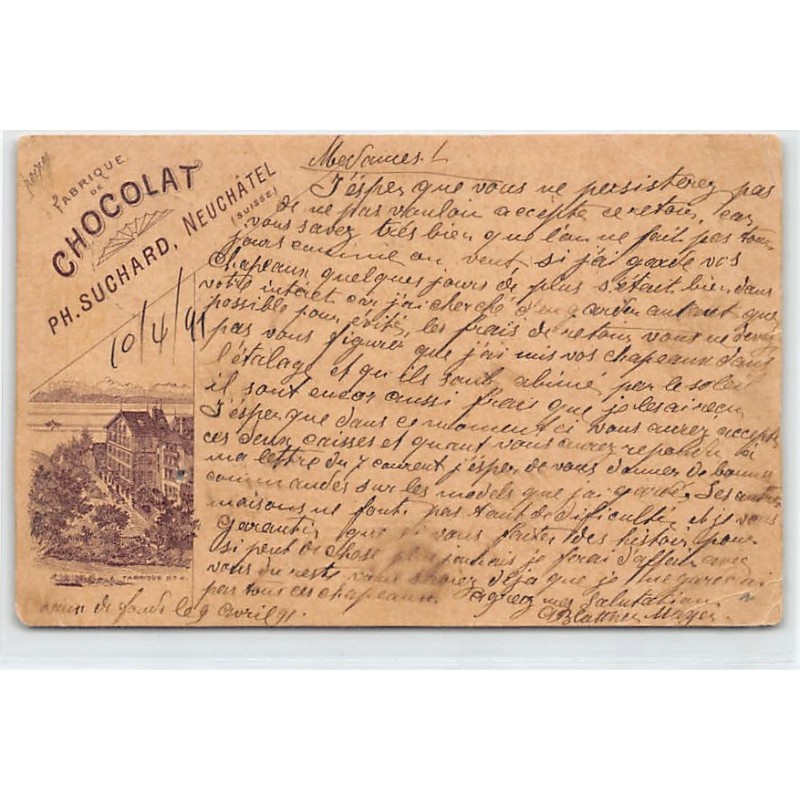 FABRIQUE
DE
CHOCOLAT
PH. SUCHARD, NEUCHÂTEL
(SUISSE)
10/4/91
FABRIQUE Nº 4.
Mesdames!
J'ésper que vous ne persisterez pas
de ne pas vouloir accépte ce retour, car
vous savez très bien que l'on ne fait pas tou-
jours comme on veut, si j'ai garde vos
chapeaux quelques jours de plus s'était bien dans
votre intérêt car j'ai cherché d'en garder autant que
possible pour évité, les frais de retour, vous ne devez
pas vous figurer que j'ai mis vos chapeaux dans
l'étalage et qu'ils sont abimé par le soleil
il sont encor aussi frais que je les ai reçu
J'ésper que dans ce moment ci vous aurez accepté
ces deux caisses et quant vous aurez repondu à
ma lettre du 7 courent j'ésper de vous donner de bonnes
commandes sur les models que j'ai gardé. Les autres
maisons ne fonts pas tant de difficultés et je vous
garantir que si vous faites des histoir pour
si peut de chose plus jamais je ferai d'affair avec
vous du reste vous savez déja que je ne garerai
pas tous ces chapeaux. agréez mes Salutation
Blattner Meyer
de fonds le 9 avril 91